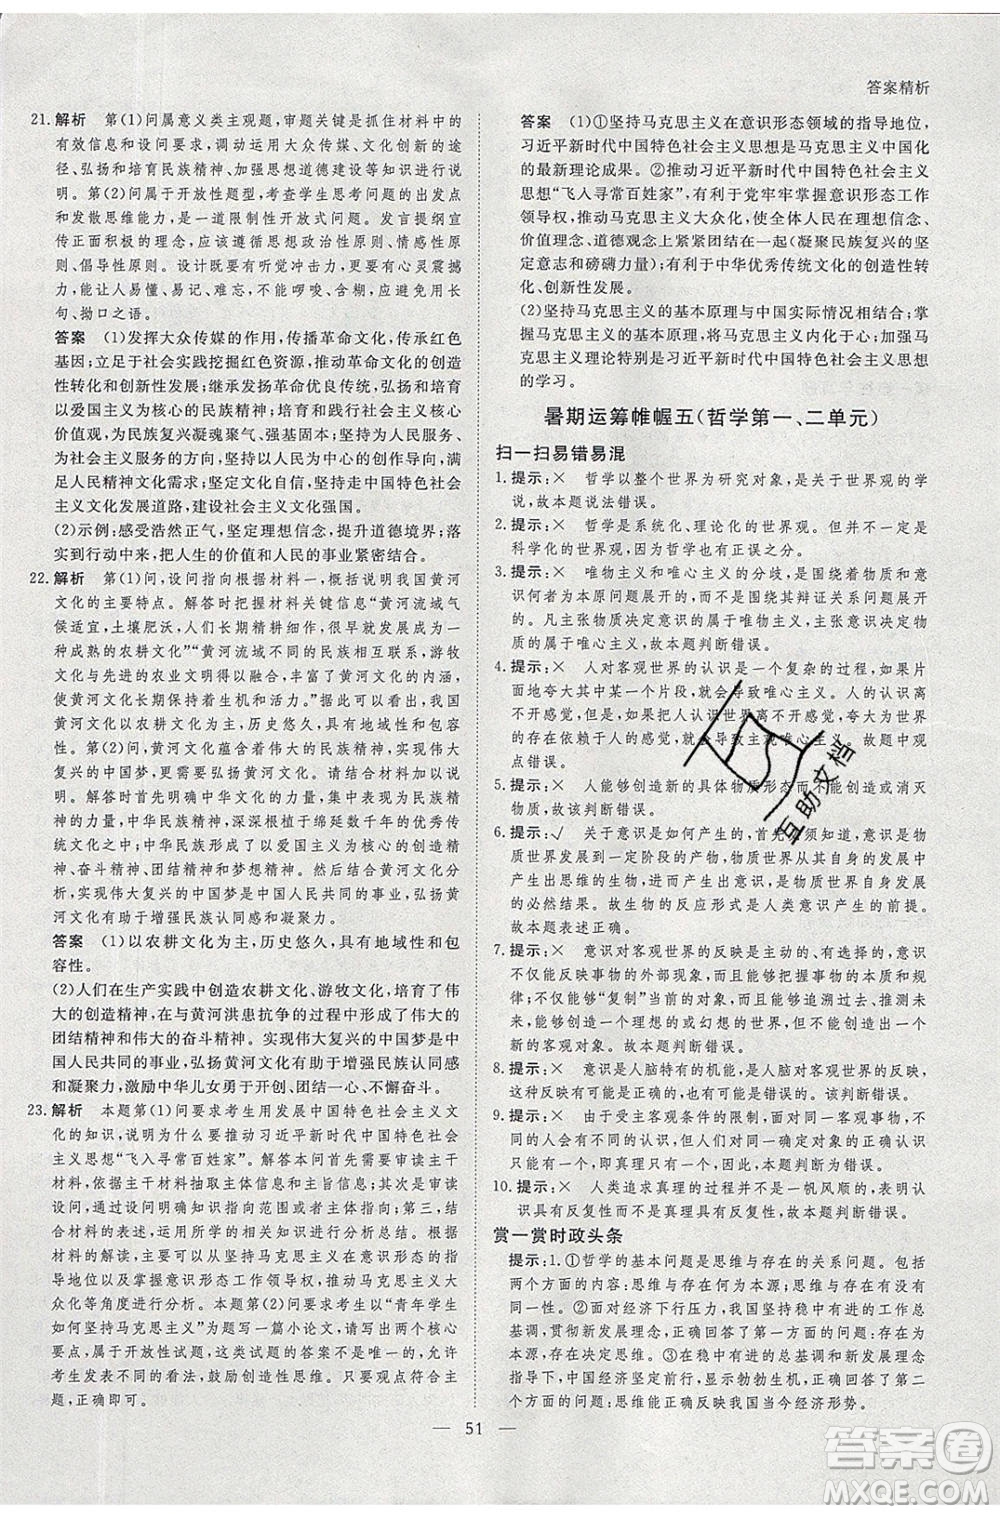 答案精析
21. 解析　第(1)问属意义类主观题,审题关键是抓住材料中的
有效信息和设问要求,调动运用大众传媒、文化与经济的关
系、弘扬和培育民族精神、加强思想道德建设等知识进行具
体说明。第(2)问属于开放性题型,考查学生思考问题的出发点
和发散思维能力,是一道非限制性开放式问题。发言提纲宣
传正面积极的理念,应该围绕思想政治性原则、感召性原
则、倡导性原则。设计既要有听觉冲击力,还要有心灵震撼
力,让人易懂、易记、难忘,不能啰唆、含混,应避免使用长
句、拗口之语。
答案　(1)发挥大众传媒的作用,传播革命文化,传承红色
基因;立足于社会实践挖掘红色资源,推动革命文化的创造
性转化和创新性发展;继承革命优良传统,弘扬和培育
以爱国主义为核心的民族精神;培育和践行社会主义核心
价值观,为民族复兴凝魂聚气、强基固本;坚持以人民为中
心的工作导向,坚持为人民服务、为社会主义服务,满足人
民精神文化需求;坚定文化自信,坚持走中国特色社会主
义文化发展道路,建设社会主义文化强国。
(2)示例:感受浩然正气,坚定理想信念,提升道德境界;落
实到行动中,把人生的价值和人民的事业紧密结合。
22. 解析　第(1)问,设问指向根据材料一,概括说明我国黄河
文化的主要特点。解答时把握材料关键信息“黄河流域气
候适宜,土壤肥沃,人们长期在此耕作、生活,形成了自成体
系的成熟的农耕文化”“黄河流域特殊的地理环境,游牧
文化与先进的农业文明,极大丰富了黄河文化的内涵,
使黄河文化长期保持着生机和活力。”作答即可,如我国
黄河文化以农耕文化为主,历史悠久,具有地域性和包容
性。第(2)问,黄河文化蕴含着伟大的民族精神,有助于实
现伟大复兴的中国梦,弘扬黄河文化的意义在于增强中华
民族凝聚力。解答时,注意调动文化对人的影响、传统文
化、中华文化的力量,集中表现为民族精神的力量等知识
加以说明。如中华文化的力量,集中表现为民族精神的力
量,中华民族精神深深根植于绵延数千年的优秀文化传统
之中,始终是中华民族生生不息、发展壮大的强大精神支
柱,中国人民具有伟大的创造、奋斗、团结和梦想精神;分
析,实现伟大复兴的中国梦是中国人民共同的事业,弘扬黄
河文化有助于增强民族认同感和凝聚力。
答案　(1)以农耕文化为主,历史悠久,具有地域性和包
容性。
(2)人们在生产实践中创造农耕文化、游牧文化,培育了伟
大的创造精神,在与黄河洪患抗争的过程中形成了伟大的
团结精神和伟大的奋斗精神。实现伟大复兴的中国梦是中
国人民共同的事业,弘扬黄河文化有助于增强民族认同感
和凝聚力,激励中华儿女勇于开创、团结一心、不懈奋斗。
23. 解析　本题第(1)问要求考生用发展中国特色社会主义文
化的知识,说明为什么要推动习近平新时代中国特色社会
主义思想“飞入寻常百姓家”。解答本问首先要审读设问,
依据主干材料抽取主体信息和主旨信息;其次是审读设
问,明确设问要求,依据主干知识寻找知识支撑;第三,
结合材料的表述,运用所学的相关知识进行总结。通过对
材料的解读,可以从坚持马克思主义在意识形态的指导
地位、牢牢掌握意识形态工作领导权、推动马克思主义大
众化等角度进行分析。本题第(2)问要求考生以“青年学生
如何坚持马克思主义”为题写一篇小论文,考查运用所学
知识的能力,属于开放性试题,这类试题的答案不固定,考
生发表不同的看法,鼓励创造性思维。只要观点能够符合主
题,正确即可。
答案　(1)①坚持马克思主义在意识形态领域的指导地位,
习近平新时代中国特色社会主义思想是马克思主义中国化
的最新理论成果。②推动习近平新时代中国特色社会主义
思想“飞入寻常百姓家”,有利于党牢牢掌握意识形态工作
领导权,推动马克思主义大众化,使全体人民在理想信念、
价值理念、道德观念上紧紧团结在一起(凝聚民族复兴的坚
定意志和磅礴力量);有利于中华优秀传统文化的创造性转
化、创新性发展。
(2)坚持马克思主义的基本原理与中国实际情况相结合;掌
握马克思主义基本原理,将马克思主义内化于心;关注马克
思主义理论特别是习近平新时代中国特色社会主义思想
的学习。
暑期运筹帷幄五(哲学第一、二单元)
扫一扫易错易混
1. 提示:×　哲学以整个世界为研究对象,是关于世界观的学
说,故本题说法错误。
2. 提示:×　哲学是系统化、理论化的世界观。但并不一定是
科学化的世界观,因为哲学有正误之分。故本题错误。
3. 提示:×　唯物主义和唯心主义的分歧,就是围绕物质和意
识何者为本原问题展开的,而不是围绕其辩证关系问题展开
的。凡主张物质决定意识的属于唯物主义,主张意识决定物
质的属于唯心主义,故本题判断错误。
4. 提示:×　人对客观世界的认识是一个复杂的过程,如果片
面夸大其中某一个片段,就会导致唯心主义。人的认识离
不开感觉,但如果把人认识世界离不开感觉,夸大为世界
的存在依赖于人的感觉,就会导致主观唯心主义。故本题观
点错误。
5. 提示:×　人们能够创造新的具体物质形态而不能创造或消灭
物质,故该判断错误。
6. 提示:√　关于意识是如何产生的,首先必须知道,意识是
发展到一定阶段的产物,世界从自身的发展中
产生出思维的生物,进而产生出意识,是世界
的必然结果。故生物的反应形式是人类意识产生的前提。
故本题表述正确。
7. 提示:×　意识对客观世界的反映是主动的、有选择的,不
仅能反映事物的外部现象,而且能够把握事物的本质和规
律,不仅能够“复制”当前的对象,而且能够追溯过去、推测未
来,创造一个理想的或幻想的世界。人能够能动地创造
新的客观事物,故本题判断错误。
8. 提示:×　意识是人脑特有的机能,是人脑对客观世界的反映,
这种反映可能是正确的,也可能是错误的。故该说法错误。
9. 提示:×　由于受主客观条件的限制,面对同一客观事物,不
同的人会有不同的认识,但其中对同一确定对象的正确认识
只有一个,即真理只有一个,故本题判断为错误。
10. 提示:×　人类追求真理的过程并不是一帆风顺的,表明认
识具有反复性,而真理不具有反复性,故本题判断错误。
赏一赏时政头条
提示:1. ①哲学的基本问题是思维与存在的关系问题。包括
两个方面的内容:思维与存在何者为本源;思维与存在有没有
同一性。②面对经济下行压力,我国坚持稳中有进的工作总
基调,贯彻新发展理念,主要体现第一个方面的问题:存在决
定思维。③在稳中有进的总基调和新发展理念指引下,我国
经济应对下行压力,显示勃勃生机和发展活力,体现了第二
个方面的问题:思维能够正确反映我国当今经济发展状况。
51
互助文档
答案圈
MXQE.COM